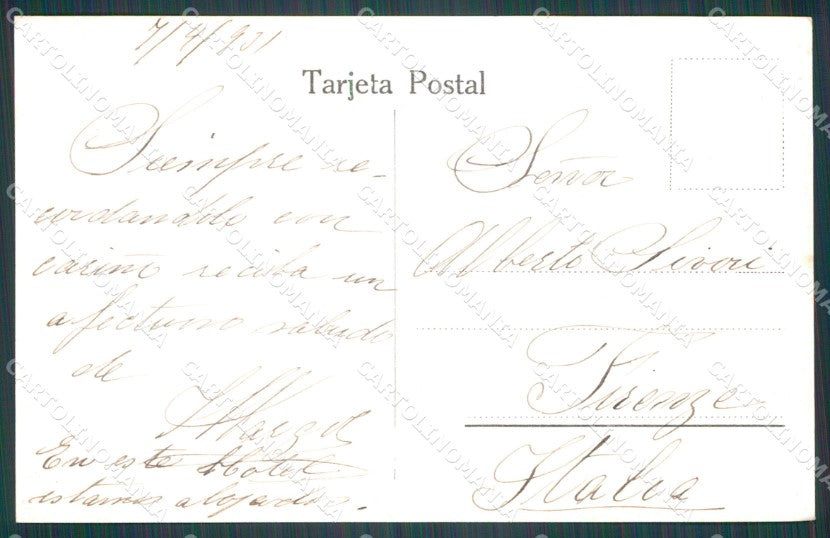 7/4/931
Tarjeta Postal
Siempre re-
cordandole con
cariño reciba un
afectuoso saludo
de
Margot
En este Hotel
estamos alojados.
Señor
Alberto Sivori
Firenze
Italia
CARTOLINOMANIA